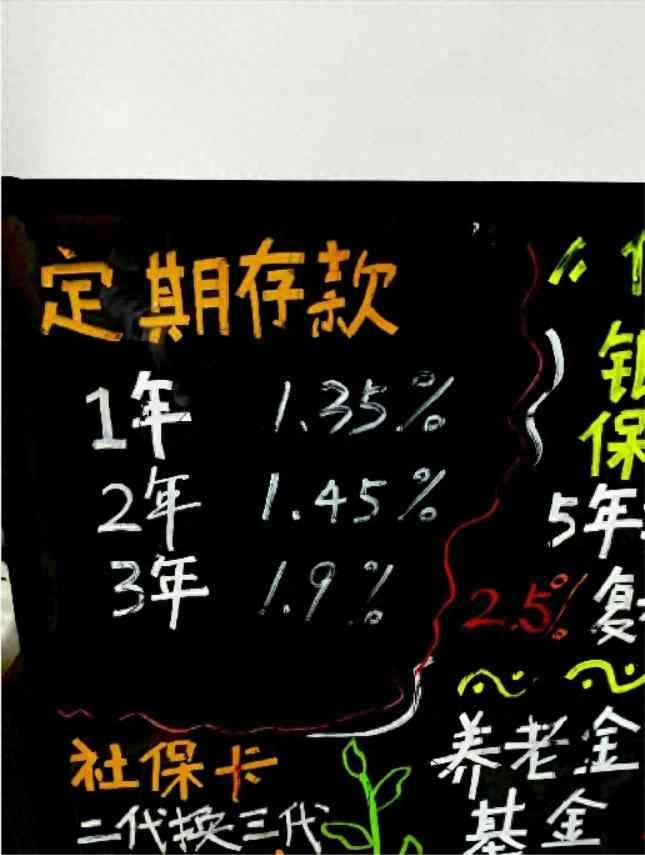 定期存款
1年 1.35%
2年 1.45%
3年 1.9%
社保卡
二代换三代
银
保
5年
2.5% 复
养老金
基金